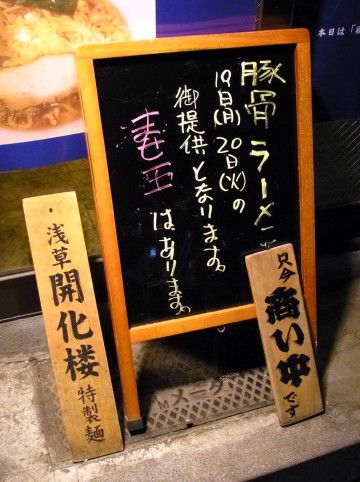 本日は「
豚骨ラーメ
19日(月) 20日(火)の
御提供となります。
はあります。
浅草開化楼特製麺
只今商い中です